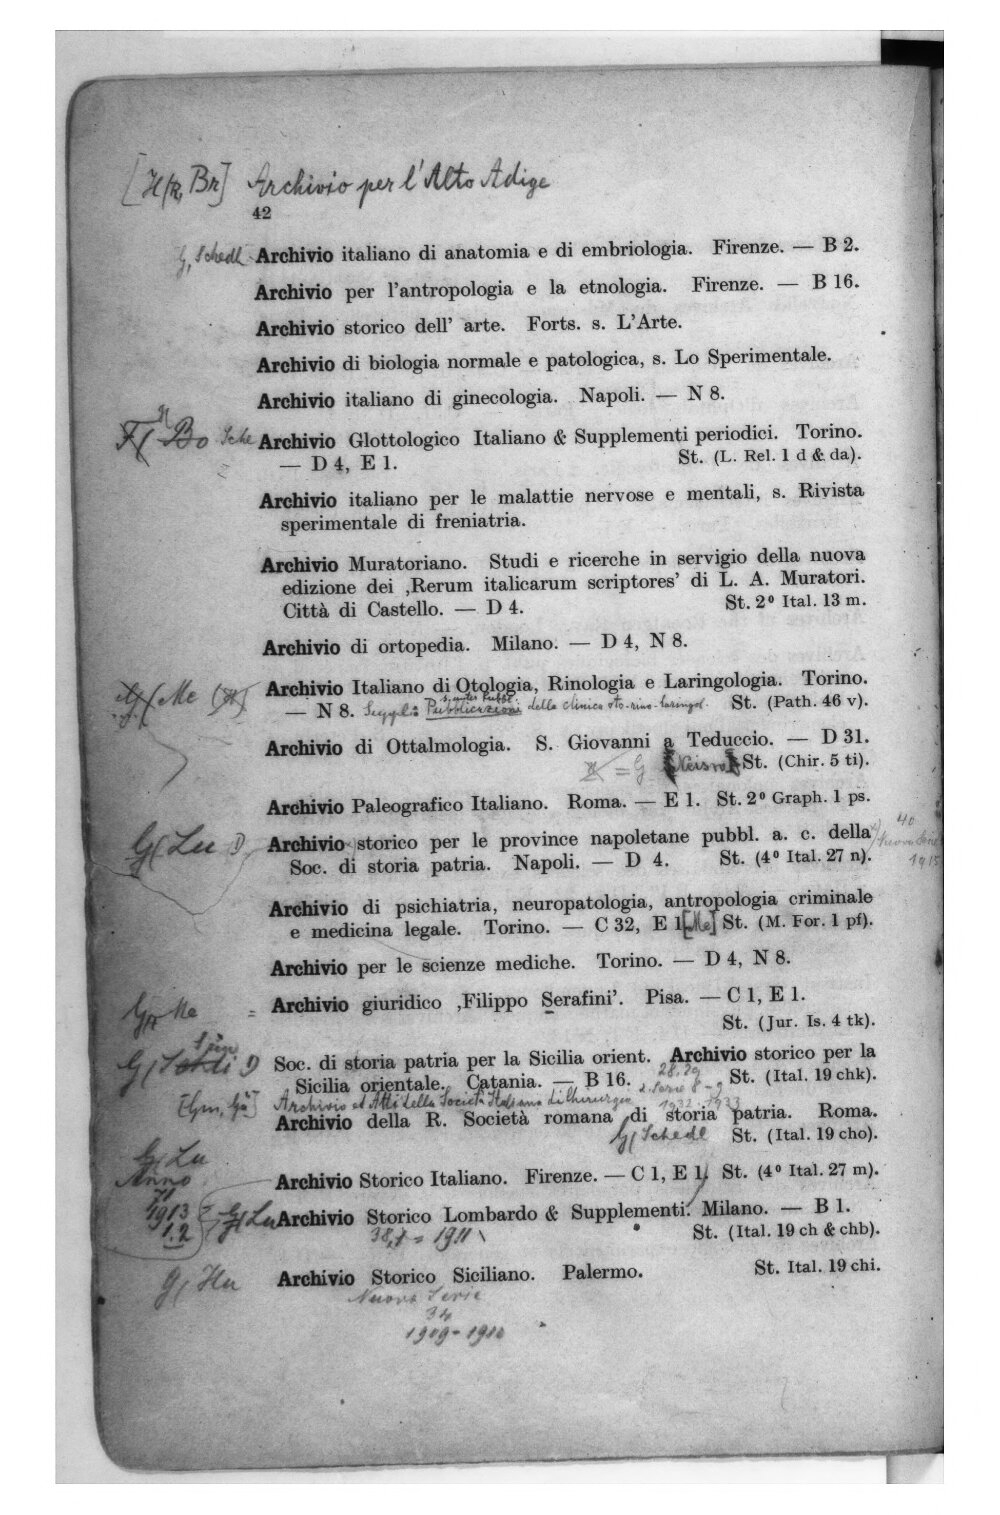 [H/R, Br] Archivio per l'Alto Adige
42
G, Schedl Archivio italiano di anatomia e di embriologia. Firenze. — B 2.
Archivio per l'antropologia e la etnologia. Firenze. — B 16.
Archivio storico dell' arte. Forts. s. L'Arte.
Archivio di biologia normale e patologica, s. Lo Sperimentale.
Archivio italiano di ginecologia. Napoli. — N 8.
Bo Sche Archivio Glottologico Italiano & Supplementi periodici. Torino.
— D 4, E 1. St. (L. Rel. 1 d & da).
Archivio italiano per le malattie nervose e mentali, s. Rivista
sperimentale di freniatria.
Archivio Muratoriano. Studi e ricerche in servigio della nuova
edizione dei ‚Rerum italicarum scriptores' di L. A. Muratori.
Città di Castello. — D 4. St. 2⁰ Ital. 13 m.
Archivio di ortopedia. Milano. — D 4, N 8.
Me Archivio Italiano di Otologia, Rinologia e Laringologia. Torino.
— N 8. Suppl: Pubblicazioni della clinica oto-rino-laringol. St. (Path. 46 v).
Archivio di Ottalmologia. S. Giovanni a Teduccio. — D 31.
= G St. (Chir. 5 ti).
Archivio Paleografico Italiano. Roma. — E 1. St. 2⁰ Graph. 1 ps.
G/Lu D Archivio storico per le province napoletane pubbl. a. c. della 40
Soc. di storia patria. Napoli. — D 4. St. (4⁰ Ital. 27 n). 1915
Archivio di psichiatria, neuropatologia, antropologia criminale
e medicina legale. Torino. — C 32, E 1 [Me] St. (M. For. 1 pf).
Archivio per le scienze mediche. Torino. — D 4, N 8.
Me = Archivio giuridico ‚Filippo Serafini'. Pisa. — C 1, E 1.
St. (Jur. Is. 4 tk).
Soc. di storia patria per la Sicilia orient. Archivio storico per la
Sicilia orientale. Catania. — B 16. 28.29 2. Serie 8-9 St. (Ital. 19 chk).
Archivio ed Atti della Società Italiana di Chirurgia 1932.1933
Archivio della R. Società romana di storia patria. Roma.
G/Schedl St. (Ital. 19 cho).
G/Lu
Anno Archivio Storico Italiano. Firenze. — C 1, E 1. St. (4⁰ Ital. 27 m).
71
1913 G/Lu Archivio Storico Lombardo & Supplementi. Milano. — B 1.
1.2 38,1 = 1911 St. (Ital. 19 ch & chb).
G/Hu Archivio Storico Siciliano. Palermo. St. Ital. 19 chi.
Nuova Serie
34
1909-1910